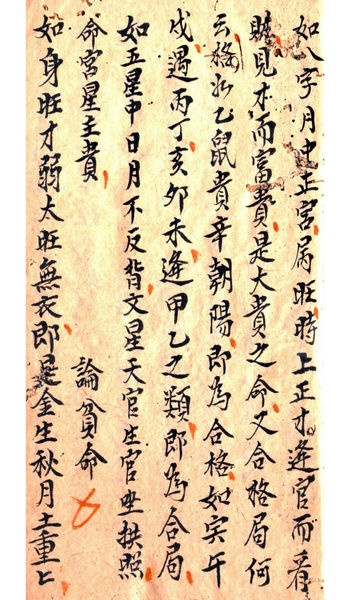 如八字月中正官局旺時上正才逢官而看
賍見才而富貴是大貴之命又合格局何
云格如乙鼠貴辛朝陽即為合格如寅午
戌遇丙丁亥卯未逢甲乙之類即為合局
如五星中日月不反背文星天官生官坐拱照
命宮星主貴　論貧命
如身旺才弱太旺無衣即是金生秋月土重七